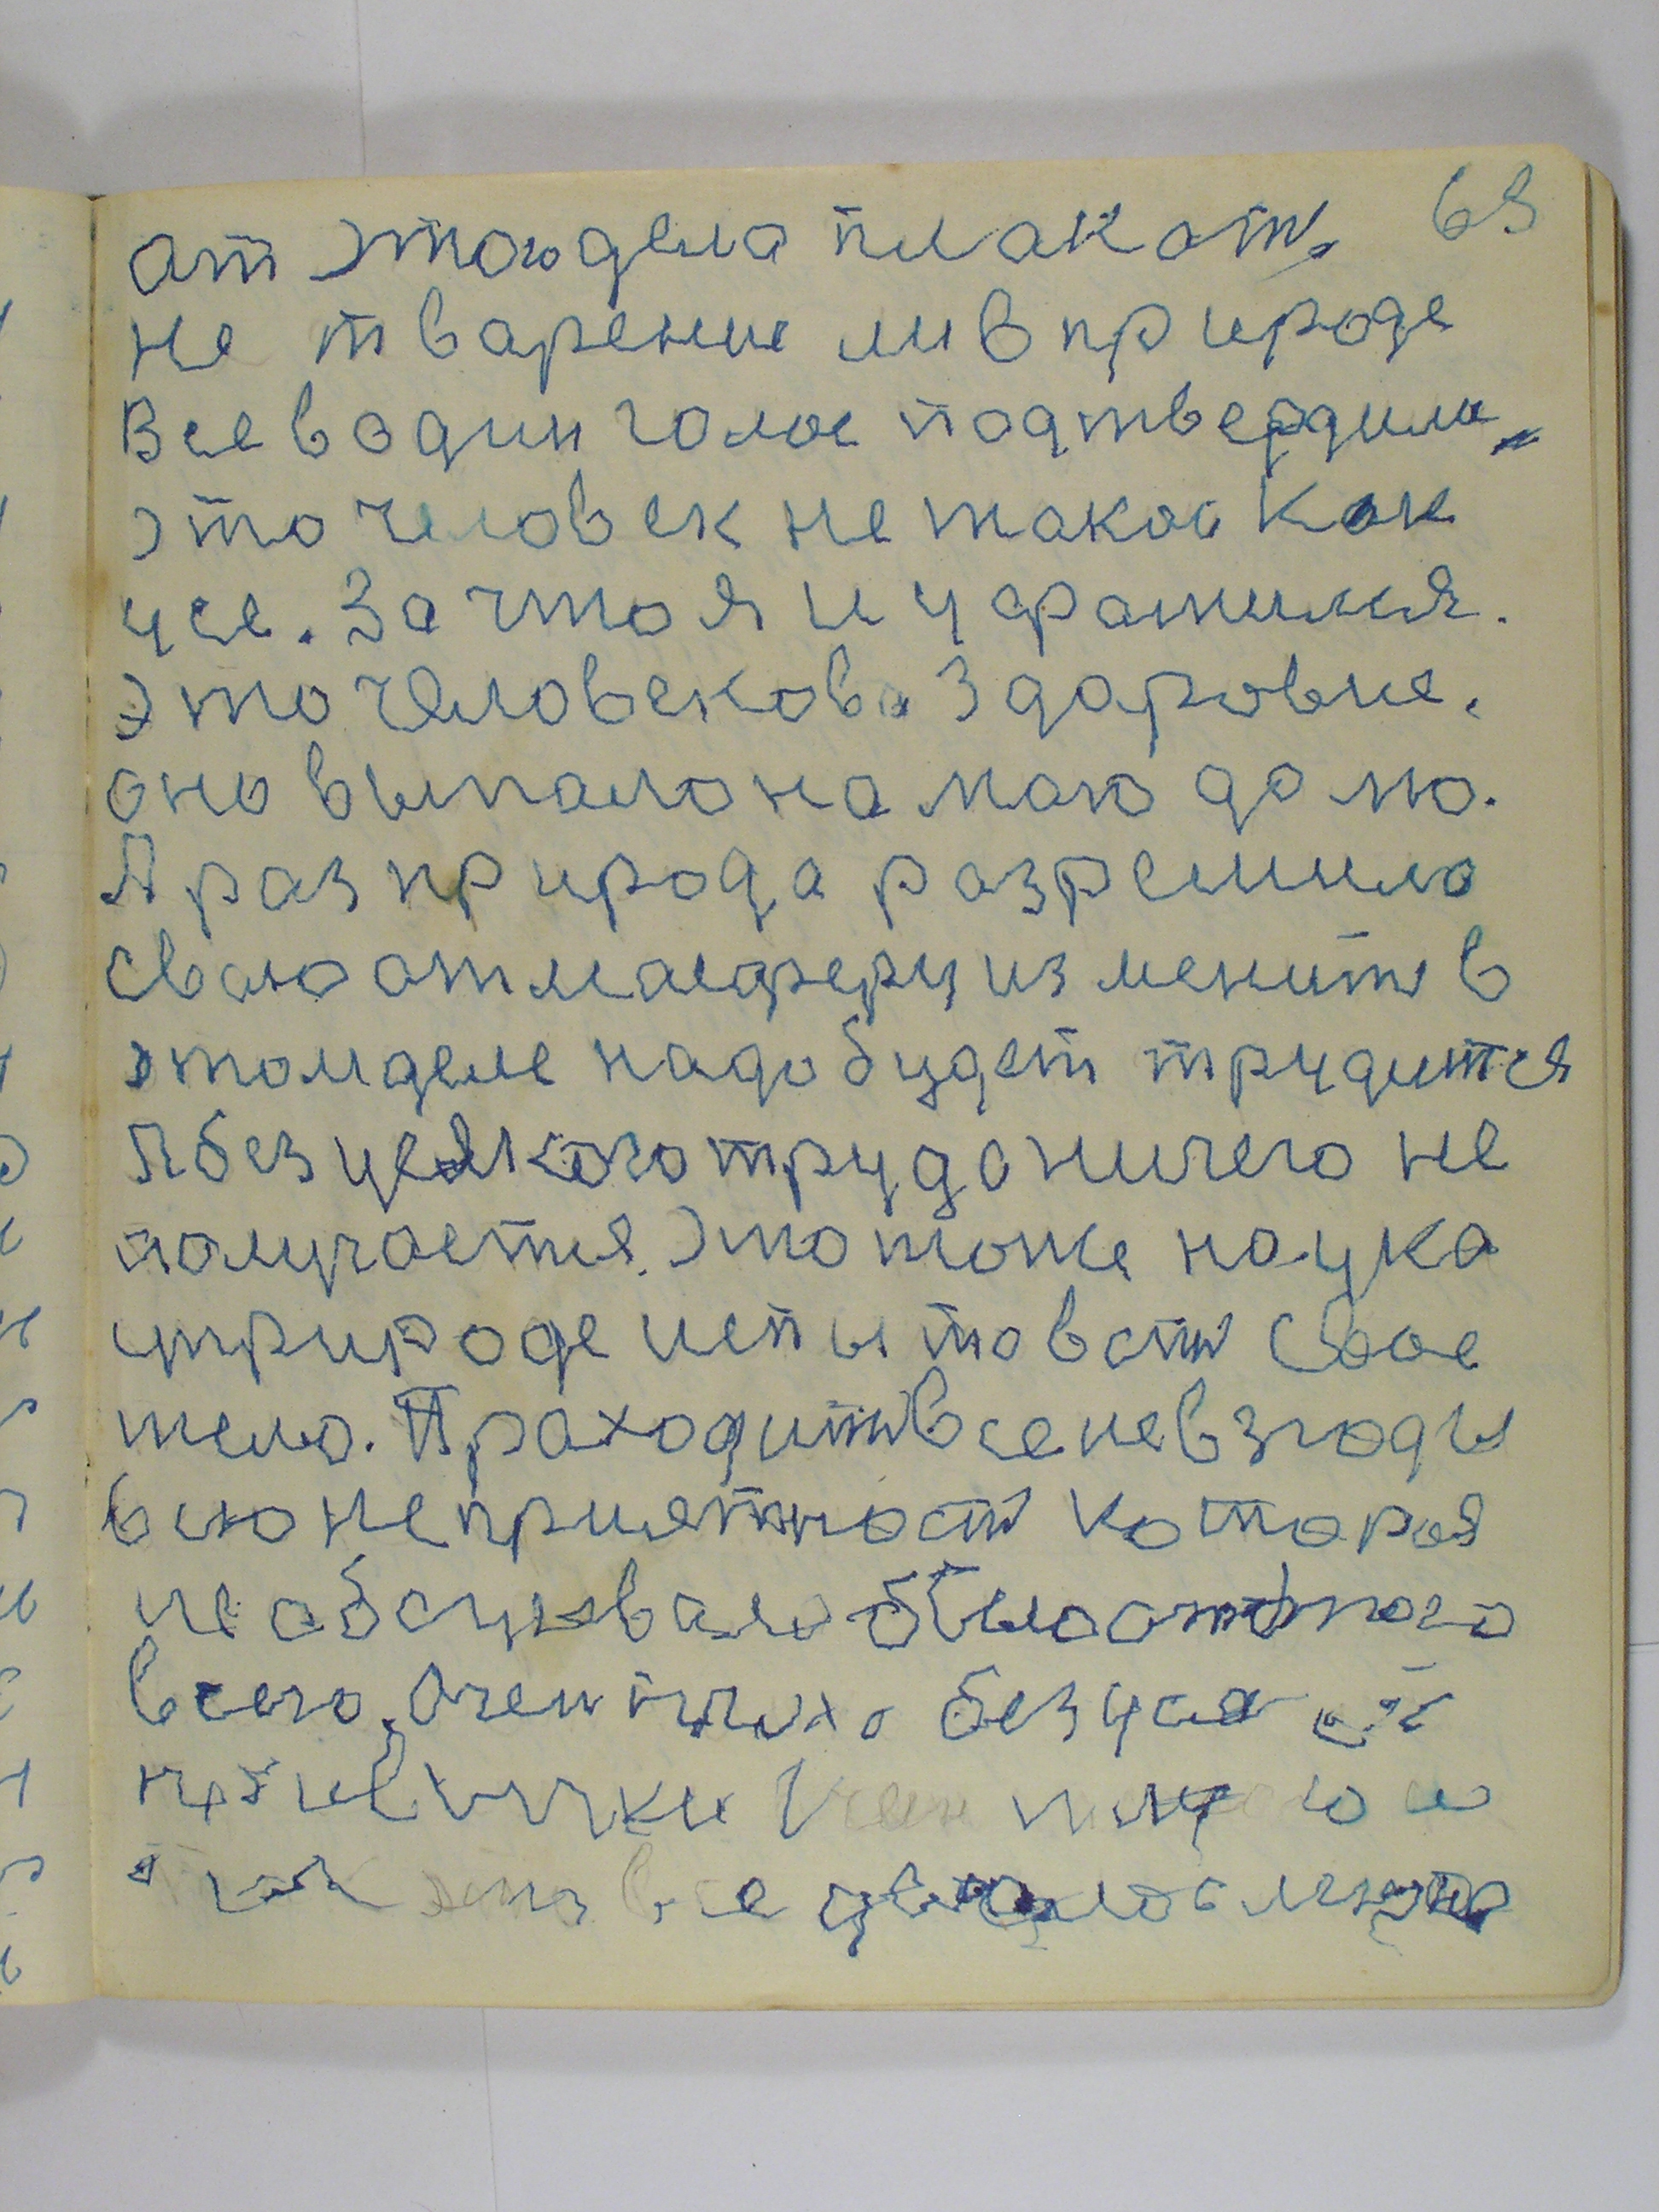 69
от этого дела плакать
не тварение ли в природе
Все в один голос подтвердили
это человек не такой как
усе. За что я и ухватился.
Это человекова здаровие.
оно выпало на маю долю.
А раз природа разрешила
сваю атмасферу изменить в
этом деле надо будет трудится
А без усякого труда ничего не
палучается. Это тоже наука
у природе испытовать свое
тело. Праходить все невзгоды
всю неприятность которая
не обосновала было от этого
всего. Очень плохо без усякой
привычки
это все